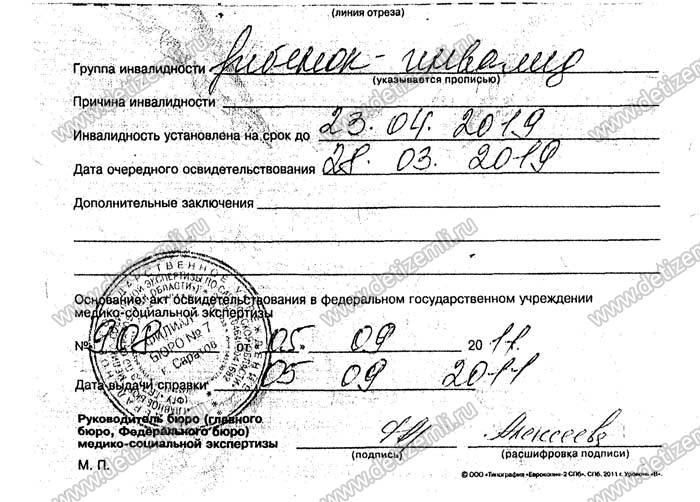 (линия отреза)
Группа инвалидности ребенок - инвалид
(указывается прописью)
Причина инвалидности
Инвалидность установлена на срок до 23. 04. 2019
Дата очередного освидетельствования 28. 03. 2019
Дополнительные заключения
Основание: акт освидетельствования в федеральном государственном учреждении
медико-социальной экспертизы
№ 908 от «05» 09 2011.
БЮРО № 7
г. Саратов
Дата выдачи справки 05 09 2011
Руководитель бюро (главного
бюро, Федерального бюро)
медико-социальной экспертизы
Алексеева
(подпись) (расшифровка подписи)
М. П.
© ООО «Типография «Еврокопия-2 СПб». СПб. 2011 г. Уровень «В».
www.detizemli.ru